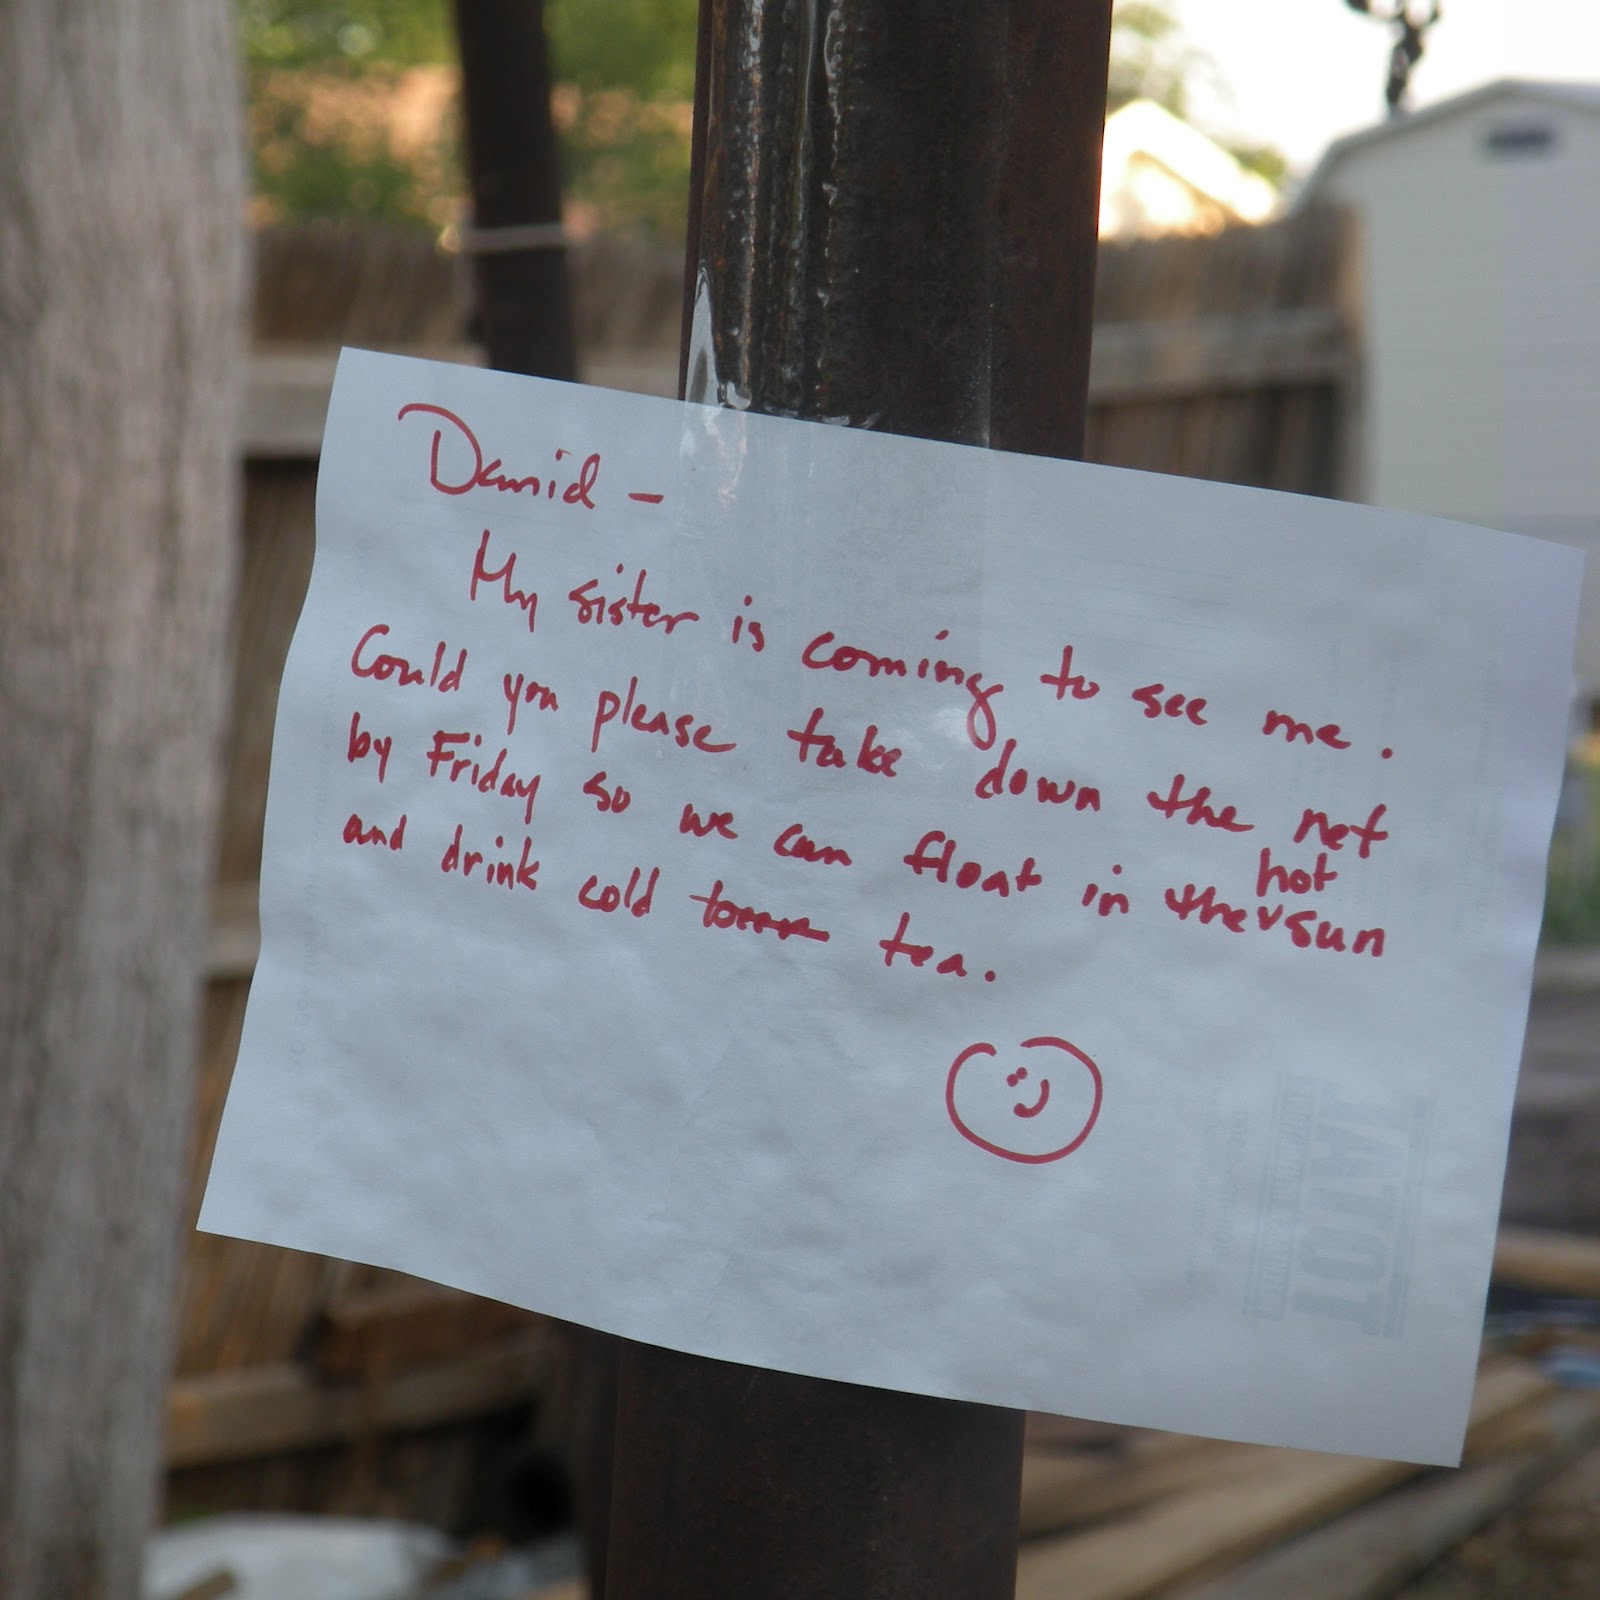 David -
My sister is coming to see me.
Could you please take down the net
by Friday so we can float in the hot sun
and drink cold tea.